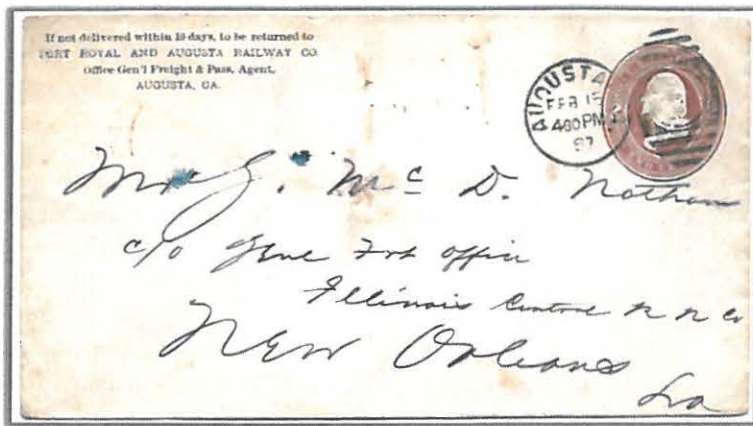 If not delivered within 10 days, to be returned to
PORT ROYAL AND AUGUSTA RAILWAY CO.
Office Gen'l Freight & Pass. Agent,
AUGUSTA, GA.
AUGUSTA
FEB 15
4 00 PM
97
Mr J. Mc D. Nathan
c/o Genl Frt Office
Illinois Central R R Co
New Orleans
La